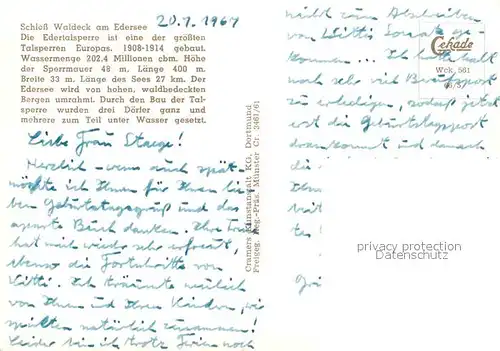 Schloß Waldeck am Edersee
20.7.1967
Die Edertalsperre ist eine der größten
Talsperren Europas. 1908-1914 gebaut.
Wassermenge 202.4 Millionen cbm. Höhe
der Sperrmauer 48 m. Länge 400 m.
Breite 33 m. Länge des Sees 27 km. Der
Edersee wird von hohen, waldbedeckten
Bergen umrahmt. Durch den Bau der Tal-
sperre wurden drei Dörfer ganz und
mehrere zum Teil unter Wasser gesetzt.
Liebe Frau Staege!
Herzlich - wenn auch spät -
möchte ich Ihnen für Ihren lieben
Geburtstagsgruß und das
aparte Buch danken. Ihre Treue
hat mich wieder sehr erfreut,
ebenso die Fortschritte von
Kitti. Ich träumte neulich
von Ihnen und Ihren Kindern, wir
spielten natürlich zusammen!
Leider bin ich trotz Ferien noch
Cramers Kunstanstalt KG, Dortmund
Freigeg. Reg.-Präs. Münster Cr. 3461/61
nicht zum Abschreiben
von Kittis Sonate ge-
kommen ... Ich hatte halt
noch sehr viel Berufspost
zu erledigen, sodaß jetzt
erst die Geburtstagspost
drankommt und danach
die
Cekade
Wck. 561
privacy protection
Datenschutz